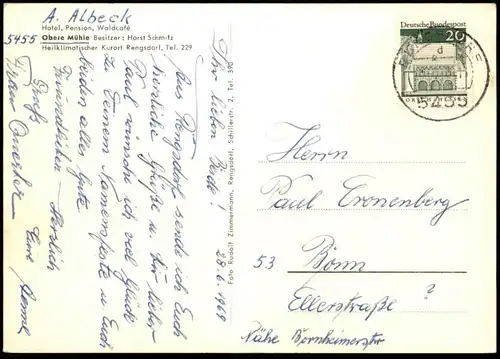 A. Albeck
Hotel, Pension, Waldcafé
5455 Obere Mühle Besitzer: Horst Schmitz
Heilklimatischer Kurort Rengsdorf, Tel. 229
28.6.1969
Ihr lieben Beide!
Aus Rengsdorf sende ich Euch
herzliche Grüße u. Dir lieber
Paul wünsche ich viel Glück
zu Deinem Namensfeste u. Euch
beiden alles Gute.
Groß
Frau
Herzlich
Eure
Foto Rudolf Zimmermann, Rengsdorf, Schillerstr. 2, Tel. 390
Deutsche Bundespost
20
5455
Herrn
Paul Cronenberg
53 Bonn
Ellerstraße ?
Nähe Bornheimerstr